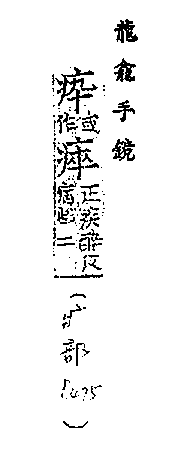 龍龕手鏡
或
作
瘁
正疾醉反
病也二
(疒部 )